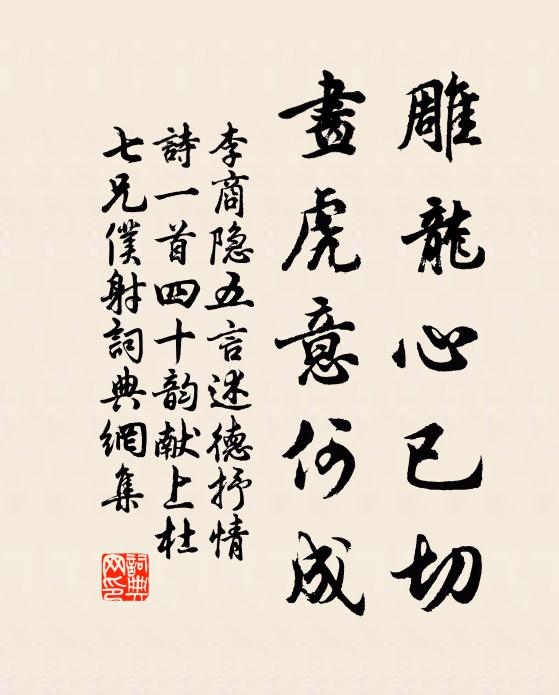 雕龍心已切
畫虎意何成
李商隐五言述德抒情
詩一首四十韵献上杜
七兄僕射詞典網集
詞典网印